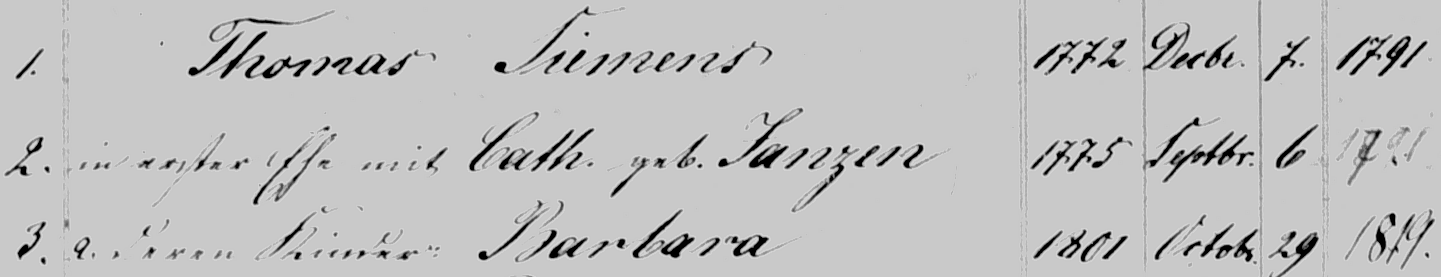 1. Thomas Siemens 1772 Decbr. 7. 1791.
2. in erster Ehe mit Cath. geb. Janzen 1775 Septbr. 6
3. a. deren Kinder: Barbara 1801 Octobr. 29 1819.